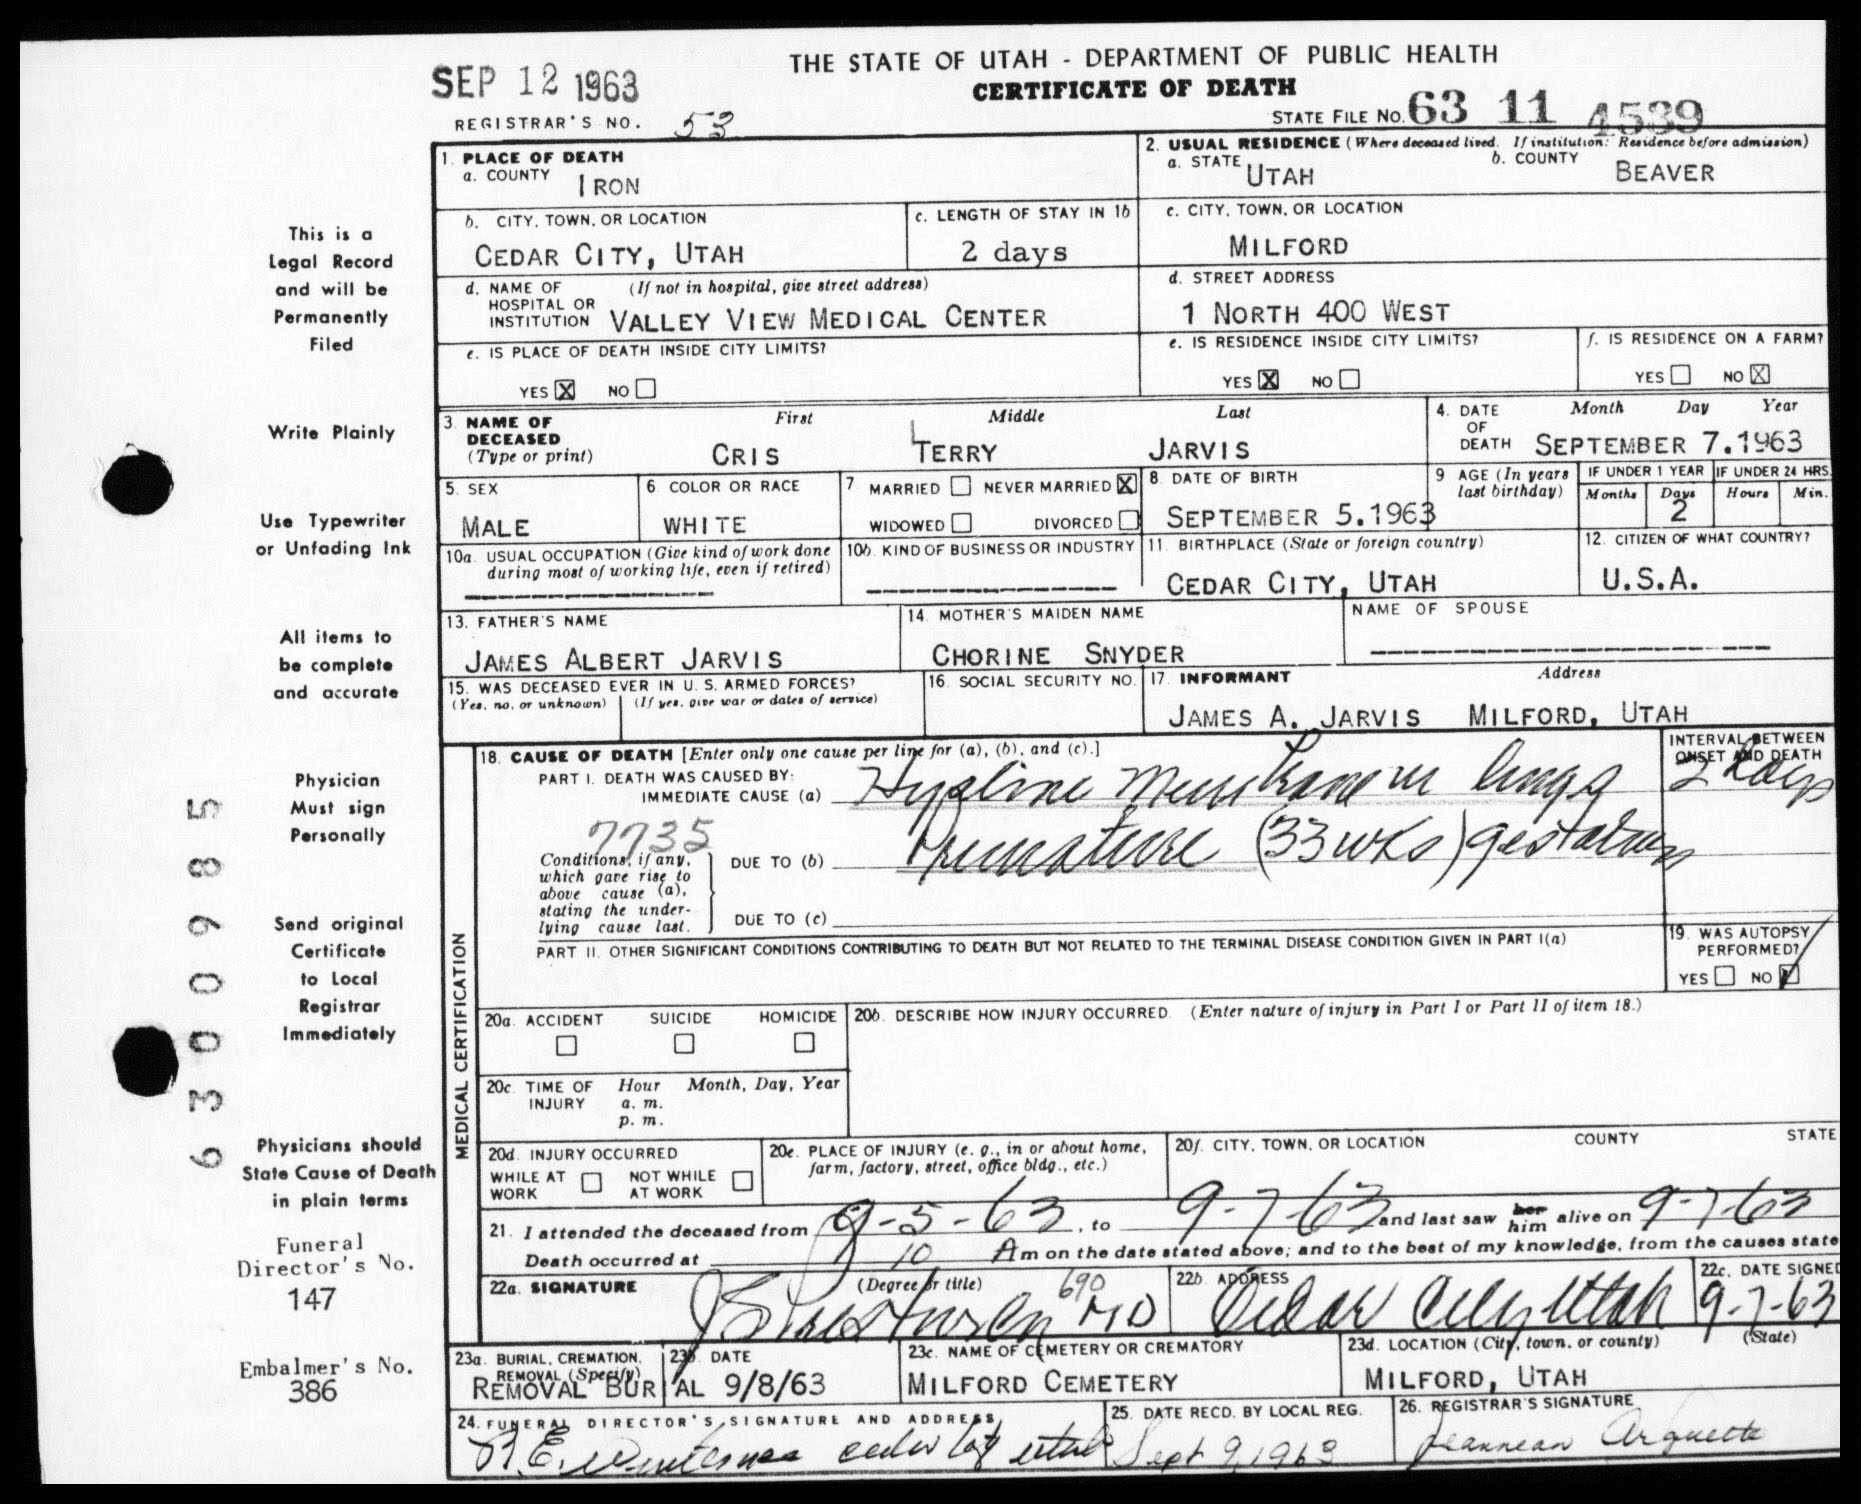 THE STATE OF UTAH - DEPARTMENT OF PUBLIC HEALTH
CERTIFICATE OF DEATH
SEP 12 1963
REGISTRAR'S NO. 53
STATE FILE NO. 63 11 4539
1. PLACE OF DEATH
a. COUNTY IRON
2. USUAL RESIDENCE (Where deceased lived. If institution: Residence before admission)
a. STATE UTAH b. COUNTY BEAVER
b. CITY, TOWN, OR LOCATION
CEDAR CITY, UTAH
c. LENGTH OF STAY IN 1b
2 days
c. CITY, TOWN, OR LOCATION
MILFORD
d. NAME OF HOSPITAL OR INSTITUTION (If not in hospital, give street address)
VALLEY VIEW MEDICAL CENTER
d. STREET ADDRESS
1 NORTH 400 WEST
e. IS PLACE OF DEATH INSIDE CITY LIMITS?
YES X NO
e. IS RESIDENCE INSIDE CITY LIMITS?
YES X NO
f. IS RESIDENCE ON A FARM?
YES NO X
3. NAME OF DECEASED (Type or print)
First Middle Last
CRIS TERRY JARVIS
4. DATE OF DEATH
Month Day Year
SEPTEMBER 7.1963
5. SEX
MALE
6 COLOR OR RACE
WHITE
7. MARRIED NEVER MARRIED X
WIDOWED DIVORCED
8. DATE OF BIRTH
SEPTEMBER 5.1963
9 AGE (In years last birthday)
IF UNDER 1 YEAR IF UNDER 24 HRS.
Months Days Hours Min.
2
10a. USUAL OCCUPATION (Give kind of work done during most of working life, even if retired)
10b. KIND OF BUSINESS OR INDUSTRY
11. BIRTHPLACE (State or foreign country)
CEDAR CITY, UTAH
12. CITIZEN OF WHAT COUNTRY?
U.S.A.
13. FATHER'S NAME
JAMES ALBERT JARVIS
14. MOTHER'S MAIDEN NAME
CHORINE SNYDER
NAME OF SPOUSE
15. WAS DECEASED EVER IN U. S. ARMED FORCES?
(Yes, no, or unknown) (If yes, give war or dates of service)
16. SOCIAL SECURITY NO.
17. INFORMANT Address
JAMES A. JARVIS MILFORD, UTAH
MEDICAL CERTIFICATION
18. CAUSE OF DEATH [Enter only one cause per line for (a), (b), and (c).]
PART I. DEATH WAS CAUSED BY:
IMMEDIATE CAUSE (a) Hyaline Membrane in lungs
INTERVAL BETWEEN ONSET AND DEATH
2 days
7735
Conditions, if any, which gave rise to above cause (a), stating the underlying cause last.
DUE TO (b) Premature (33 wks) gestation
DUE TO (c)
PART II. OTHER SIGNIFICANT CONDITIONS CONTRIBUTING TO DEATH BUT NOT RELATED TO THE TERMINAL DISEASE CONDITION GIVEN IN PART I(a)
19. WAS AUTOPSY PERFORMED?
YES NO
20a. ACCIDENT SUICIDE HOMICIDE
20b. DESCRIBE HOW INJURY OCCURRED. (Enter nature of injury in Part I or Part II of item 18.)
20c. TIME OF INJURY Hour Month, Day, Year
a. m.
p. m.
20d. INJURY OCCURRED
WHILE AT WORK NOT WHILE AT WORK
20e. PLACE OF INJURY (e. g., in or about home, farm, factory, street, office bldg., etc.)
20f. CITY, TOWN, OR LOCATION COUNTY STATE
21. I attended the deceased from 9-5-63, to 9-7-63 and last saw her him alive on 9-7-63
Death occurred at 10 A m on the date stated above; and to the best of my knowledge, from the causes state
22a. SIGNATURE (Degree or title)
690
MD
22b. ADDRESS
Cedar City Utah
22c. DATE SIGNED
9-7-63
23a. BURIAL, CREMATION, REMOVAL (Specify)
23b. DATE
REMOVAL BURIAL 9/8/63
23c. NAME OF CEMETERY OR CREMATORY
MILFORD CEMETERY
23d. LOCATION (City, town, or county) (State)
MILFORD, UTAH
24. FUNERAL DIRECTOR'S SIGNATURE AND ADDRESS
cedar city utah
25. DATE RECD. BY LOCAL REG.
Sept 9, 1963
26. REGISTRAR'S SIGNATURE
Jeannean Arquette
This is a
Legal Record
and will be
Permanently
Filed
Write Plainly
Use Typewriter
or Unfading Ink
All items to
be complete
and accurate
Physician
Must sign
Personally
Send original
Certificate
to Local
Registrar
Immediately
Physicians should
State Cause of Death
in plain terms
Funeral
Director's No.
147
Embalmer's No.
386
6300985